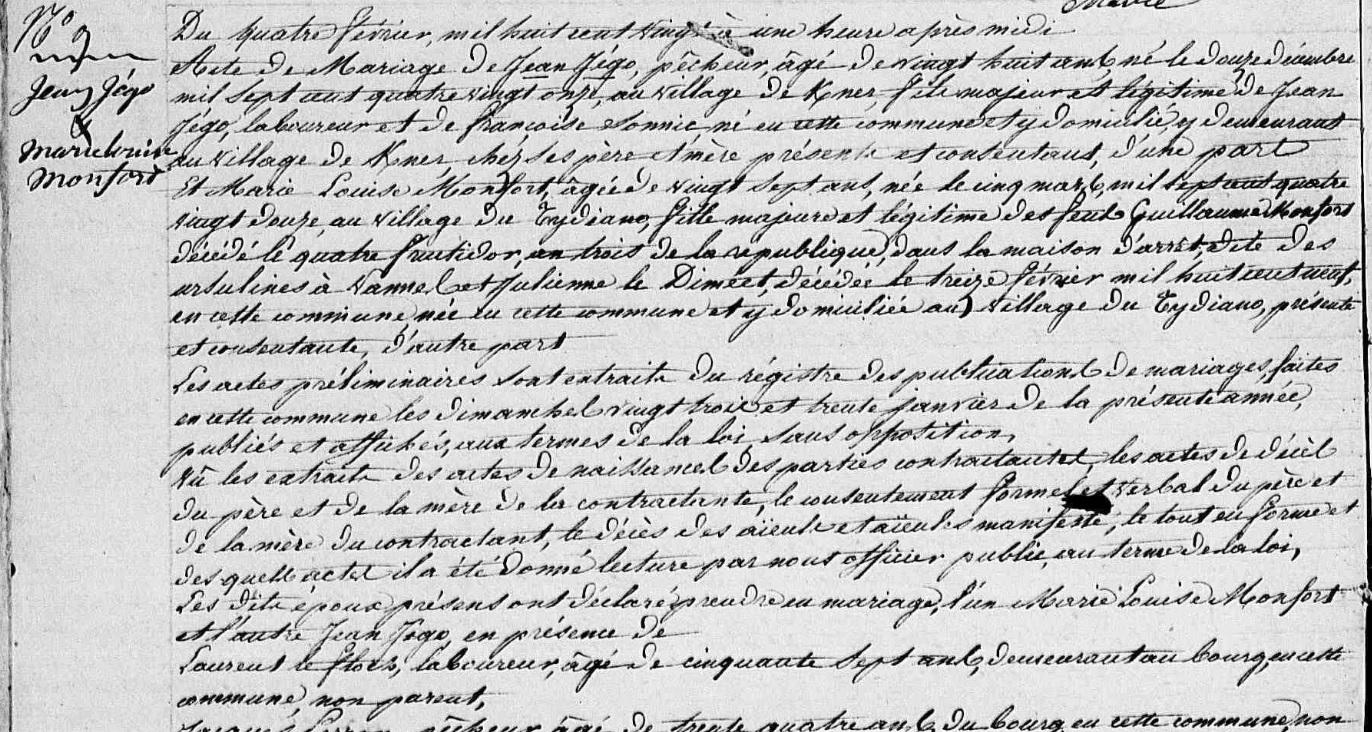 Marie
N° 9
Du quatre février, mil huit cent vingt à une heure après midi
Acte de Mariage de Jean Jégo, pêcheur, âgé de vingt huit ans né le douze décembre
Jean Jégo
mil sept cent quatre vingt onze, au village de Kner, fils majeur et légitime de Jean
&
Jégo, laboureur et de françoise Sonnic, né en cette commune et y domicilié, y demeurant
Marie louise
au village de Kner chez ses père et mère présents et consentans, d'une part
Monfort
Et Marie Louise Monfort, âgée de vingt sept ans, née le cinq mars mil sept cent quatre
vingt douze au village du Tydiano, fille majeure et légitime des feus Guillaume Monfort
décédé le quatre fructidor, an trois de la république, dans la maison d'arrêt, dite des
ursulines à Vannes et Julienne le Dimeet, décédée le treize février mil huit cent neuf,
en cette commune née en cette commune et y domiciliée au village du Tydiano, présente
et consentante, d'autre part
Les actes préliminaires sont extraits du régistre des publications de mariages, faites
en cette commune les dimanches vingt trois et trente janvier de la présente année,
publiés et affichés, aux termes de la loi, sans opposition,
Vû les extraits des actes de naissances des parties contractantes, les actes de décès
du père et de la mère de la contractante, le consentement formel et verbal du père et
de la mère du contractant, le décès des aïeuls et aïeules manifesté, le tout en forme et
des quels actes il a été donné lecture par nous officier public, au terme de la loi,
Les dits époux présens ont déclaré prendre en mariage, l'un Marie Louise Monfort
et l'autre Jean Jégo, en présence de
Laurent le floch, laboureur, âgé de cinquante sept ans, demeurant au bourg en cette
commune, non parent,
Jacques pêcheur âgé de trente quatre ans du bourg en cette commune, non